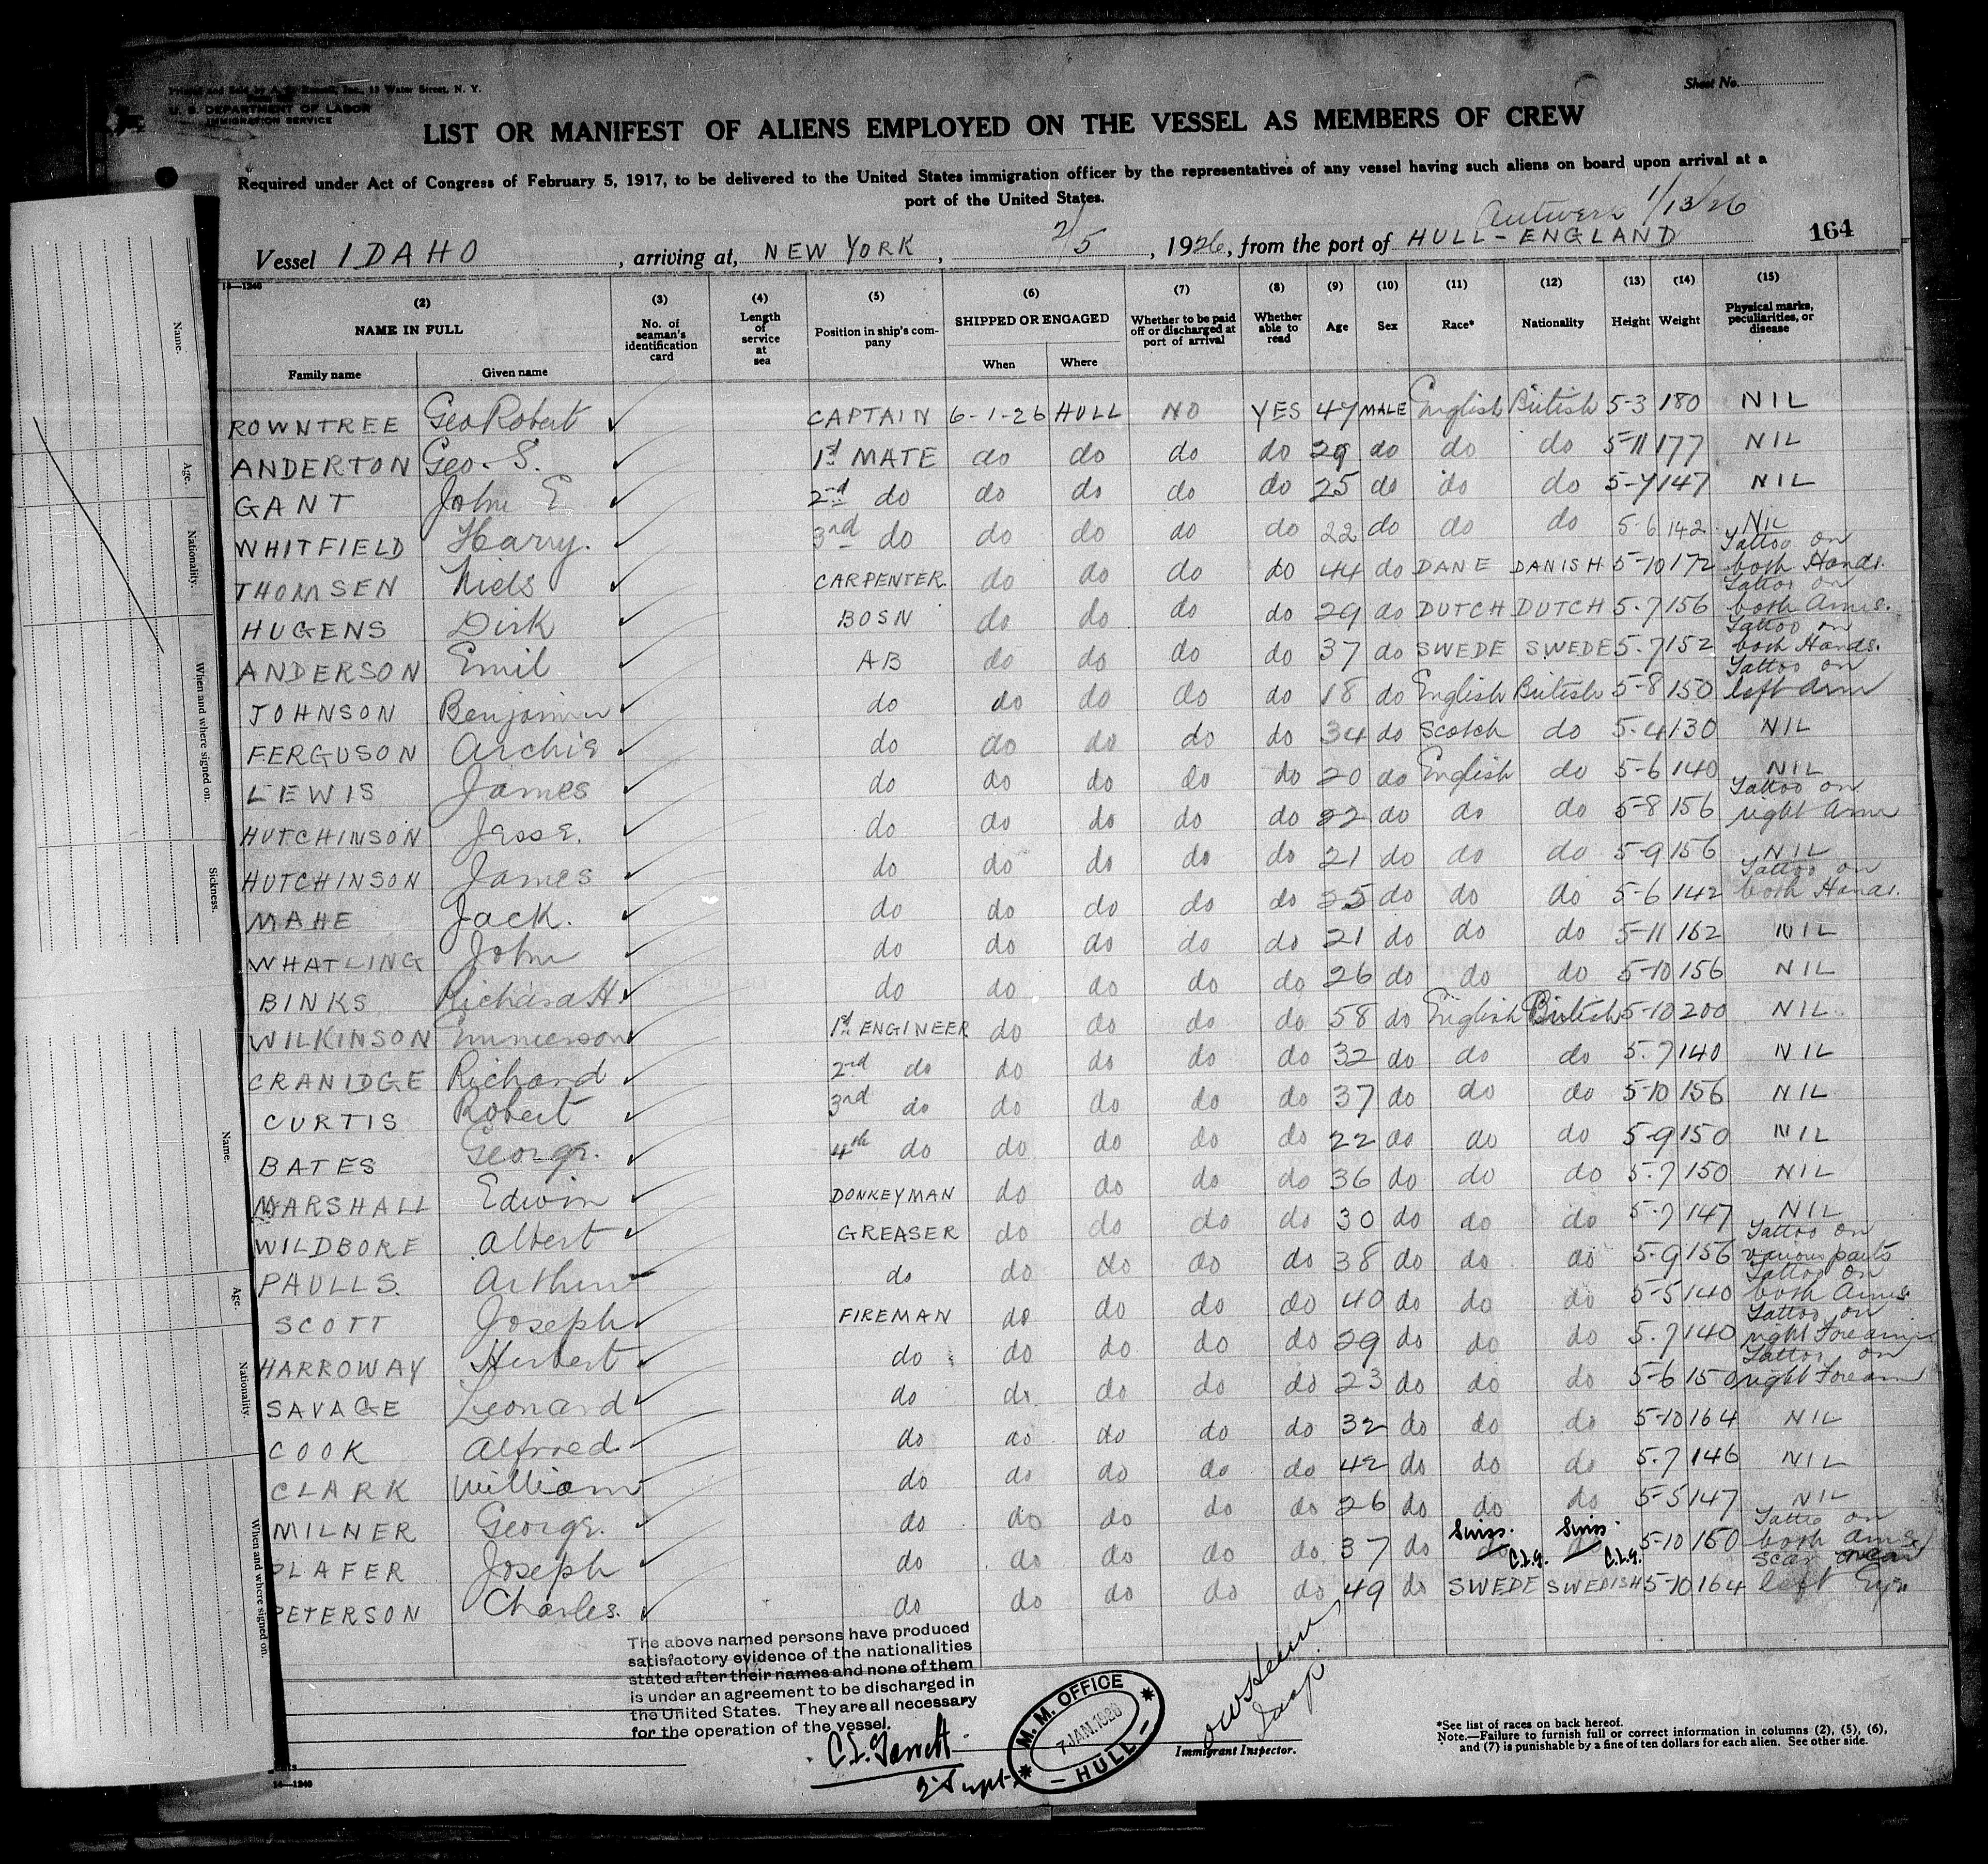 Sheet No.
Printed and Sold by A. H. Roswell, Inc., 13 Water Street, N. Y.
U. S. DEPARTMENT OF LABOR
IMMIGRATION SERVICE
LIST OR MANIFEST OF ALIENS EMPLOYED ON THE VESSEL AS MEMBERS OF CREW
Required under Act of Congress of February 5, 1917, to be delivered to the United States immigration officer by the representatives of any vessel having such aliens on board upon arrival at a
port of the United States.
Antwerp 1/13/26
Vessel IDAHO, arriving at, NEW YORK, 2/5, 1926, from the port of HULL - ENGLAND 164
14—1240
(2) (3) (4) (5) (6) (7) (8) (9) (10) (11) (12) (13) (14) (15)
NAME IN FULL No. of seaman's identification card Length of service at sea Position in ship's company SHIPPED OR ENGAGED Whether to be paid off or discharged at port of arrival Whether able to read Age Sex Race* Nationality Height Weight Physical marks, peculiarities, or disease
Family name Given name When Where
ROWNTREE Geo Robert CAPTAIN 6-1-26 HULL NO YES 47 MALE English British 5-3 180 NIL
ANDERTON Geo. S. 1st MATE do do do do 29 do do do 5-11 177 NIL
GANT John E 2nd do do do do do 25 do do do 5-7 147 NIL
WHITFIELD Harry. 3rd do do do do do 22 do do do 5-6 142 NIL
THOMSEN Niels CARPENTER do do do do 44 do DANE DANISH 5-10 172 Tattoo on both Hands.
HUGENS Dirk BOSN do do do do 29 do DUTCH DUTCH 5-7 156 Tattoo on both Arms.
ANDERSON Emil AB do do do do 37 do SWEDE SWEDE 5-7 152 Tattoo on both Hands.
JOHNSON Benjamin do do do do do 18 do English British 5-8 150 Tattoo on left arm
FERGUSON Archie do do do do do 34 do Scotch do 5-4 130 NIL
LEWIS James do do do do do 20 do English do 5-6 140 NIL
HUTCHINSON Jesse. do do do do do 22 do do do 5-8 156 Tattoo on right Arm
HUTCHINSON James do do do do do 21 do do do 5-9 156 NIL
MAHE Jack. do do do do do 25 do do do 5-6 142 Tattoo on both Hands.
WHATLING John do do do do do 21 do do do 5-11 162 NIL
BINKS Richard H. do do do do do 26 do do do 5-10 156 NIL
WILKINSON Emmerson 1st ENGINEER do do do do 58 do English British 5-10 200 NIL
CRANIDGE Richard 2nd do do do do do 32 do do do 5-7 140 NIL
CURTIS Robert 3rd do do do do do 37 do do do 5-10 156 NIL
BATES George. 4th do do do do do 22 do do do 5-9 150 NIL
MARSHALL Edwin DONKEYMAN do do do do 36 do do do 5-7 150 NIL
WILDBORE Albert GREASER do do do do 30 do do do 5-7 147 NIL
PAULLS. Arthur do do do do do 38 do do do 5-9 156 Tattoo on various parts
SCOTT Joseph FIREMAN do do do do 40 do do do 5-5 140 Tattoo on both Arms
HARROWAY Herbert do do do do do 29 do do do 5-7 140 Tattoo on right Forearm
SAVAGE Leonard do do do do do 23 do do do 5-6 150 Tattoo on right Forearm
COOK Alfred do do do do do 32 do do do 5-10 164 NIL
CLARK William do do do do do 42 do do do 5-7 146 NIL
MILNER George. do do do do do 26 do do do 5-5 147 NIL
PLAFER Joseph do do do do do 37 do do Swiss. C.L.G. Swiss. C.L.G. 5-10 160 Tattoo on both arms
PETERSON Charles. do do do do do 49 do SWEDE SWEDISH 5-10 164 scar near left Eye
The above named persons have produced
satisfactory evidence of the nationalities
stated after their names and none of them
is under an agreement to be discharged in
the United States. They are all necessary
for the operation of the vessel.
C.L. Garrett
M. M. OFFICE
7 JAN. 1926
HULL
Immigrant Inspector.
*See list of races on back hereof.
Note.—Failure to furnish full or correct information in columns (2), (5), (6),
and (7) is punishable by a fine of ten dollars for each alien. See other side.
14—1240
Name.
Age.
Nationality.
When and where signed on.
Sickness.
Name.
Age.
Nationality.
When and where signed on.